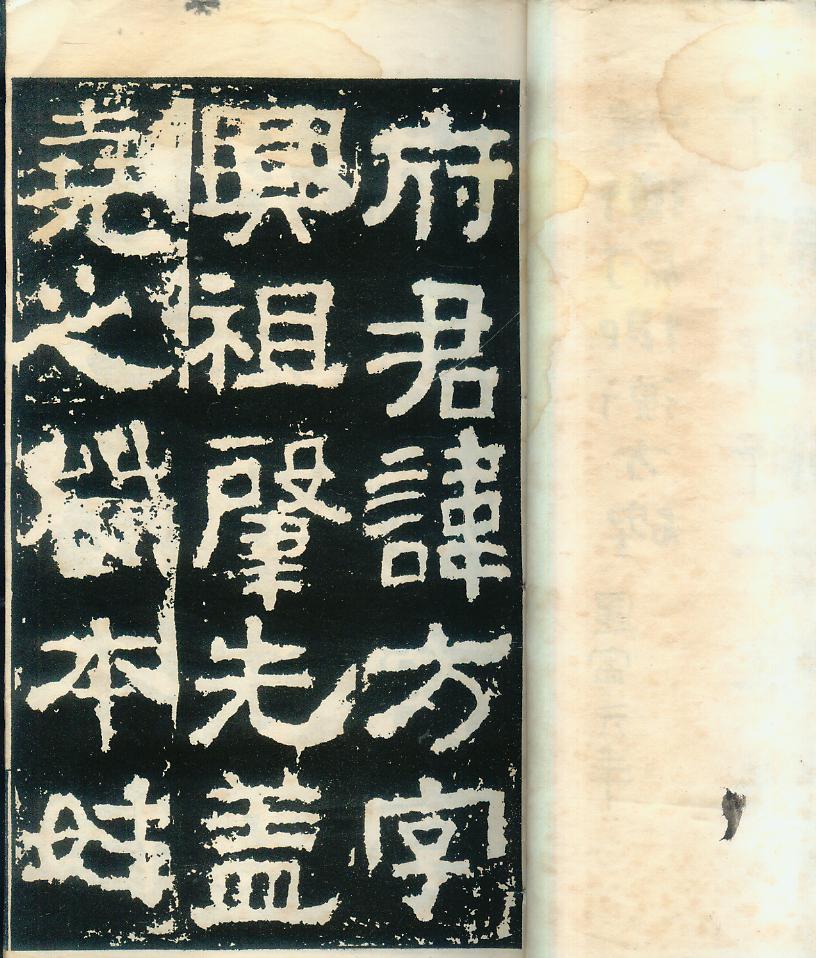 府君諱方字
興祖肇先盖
堯之苗本姓